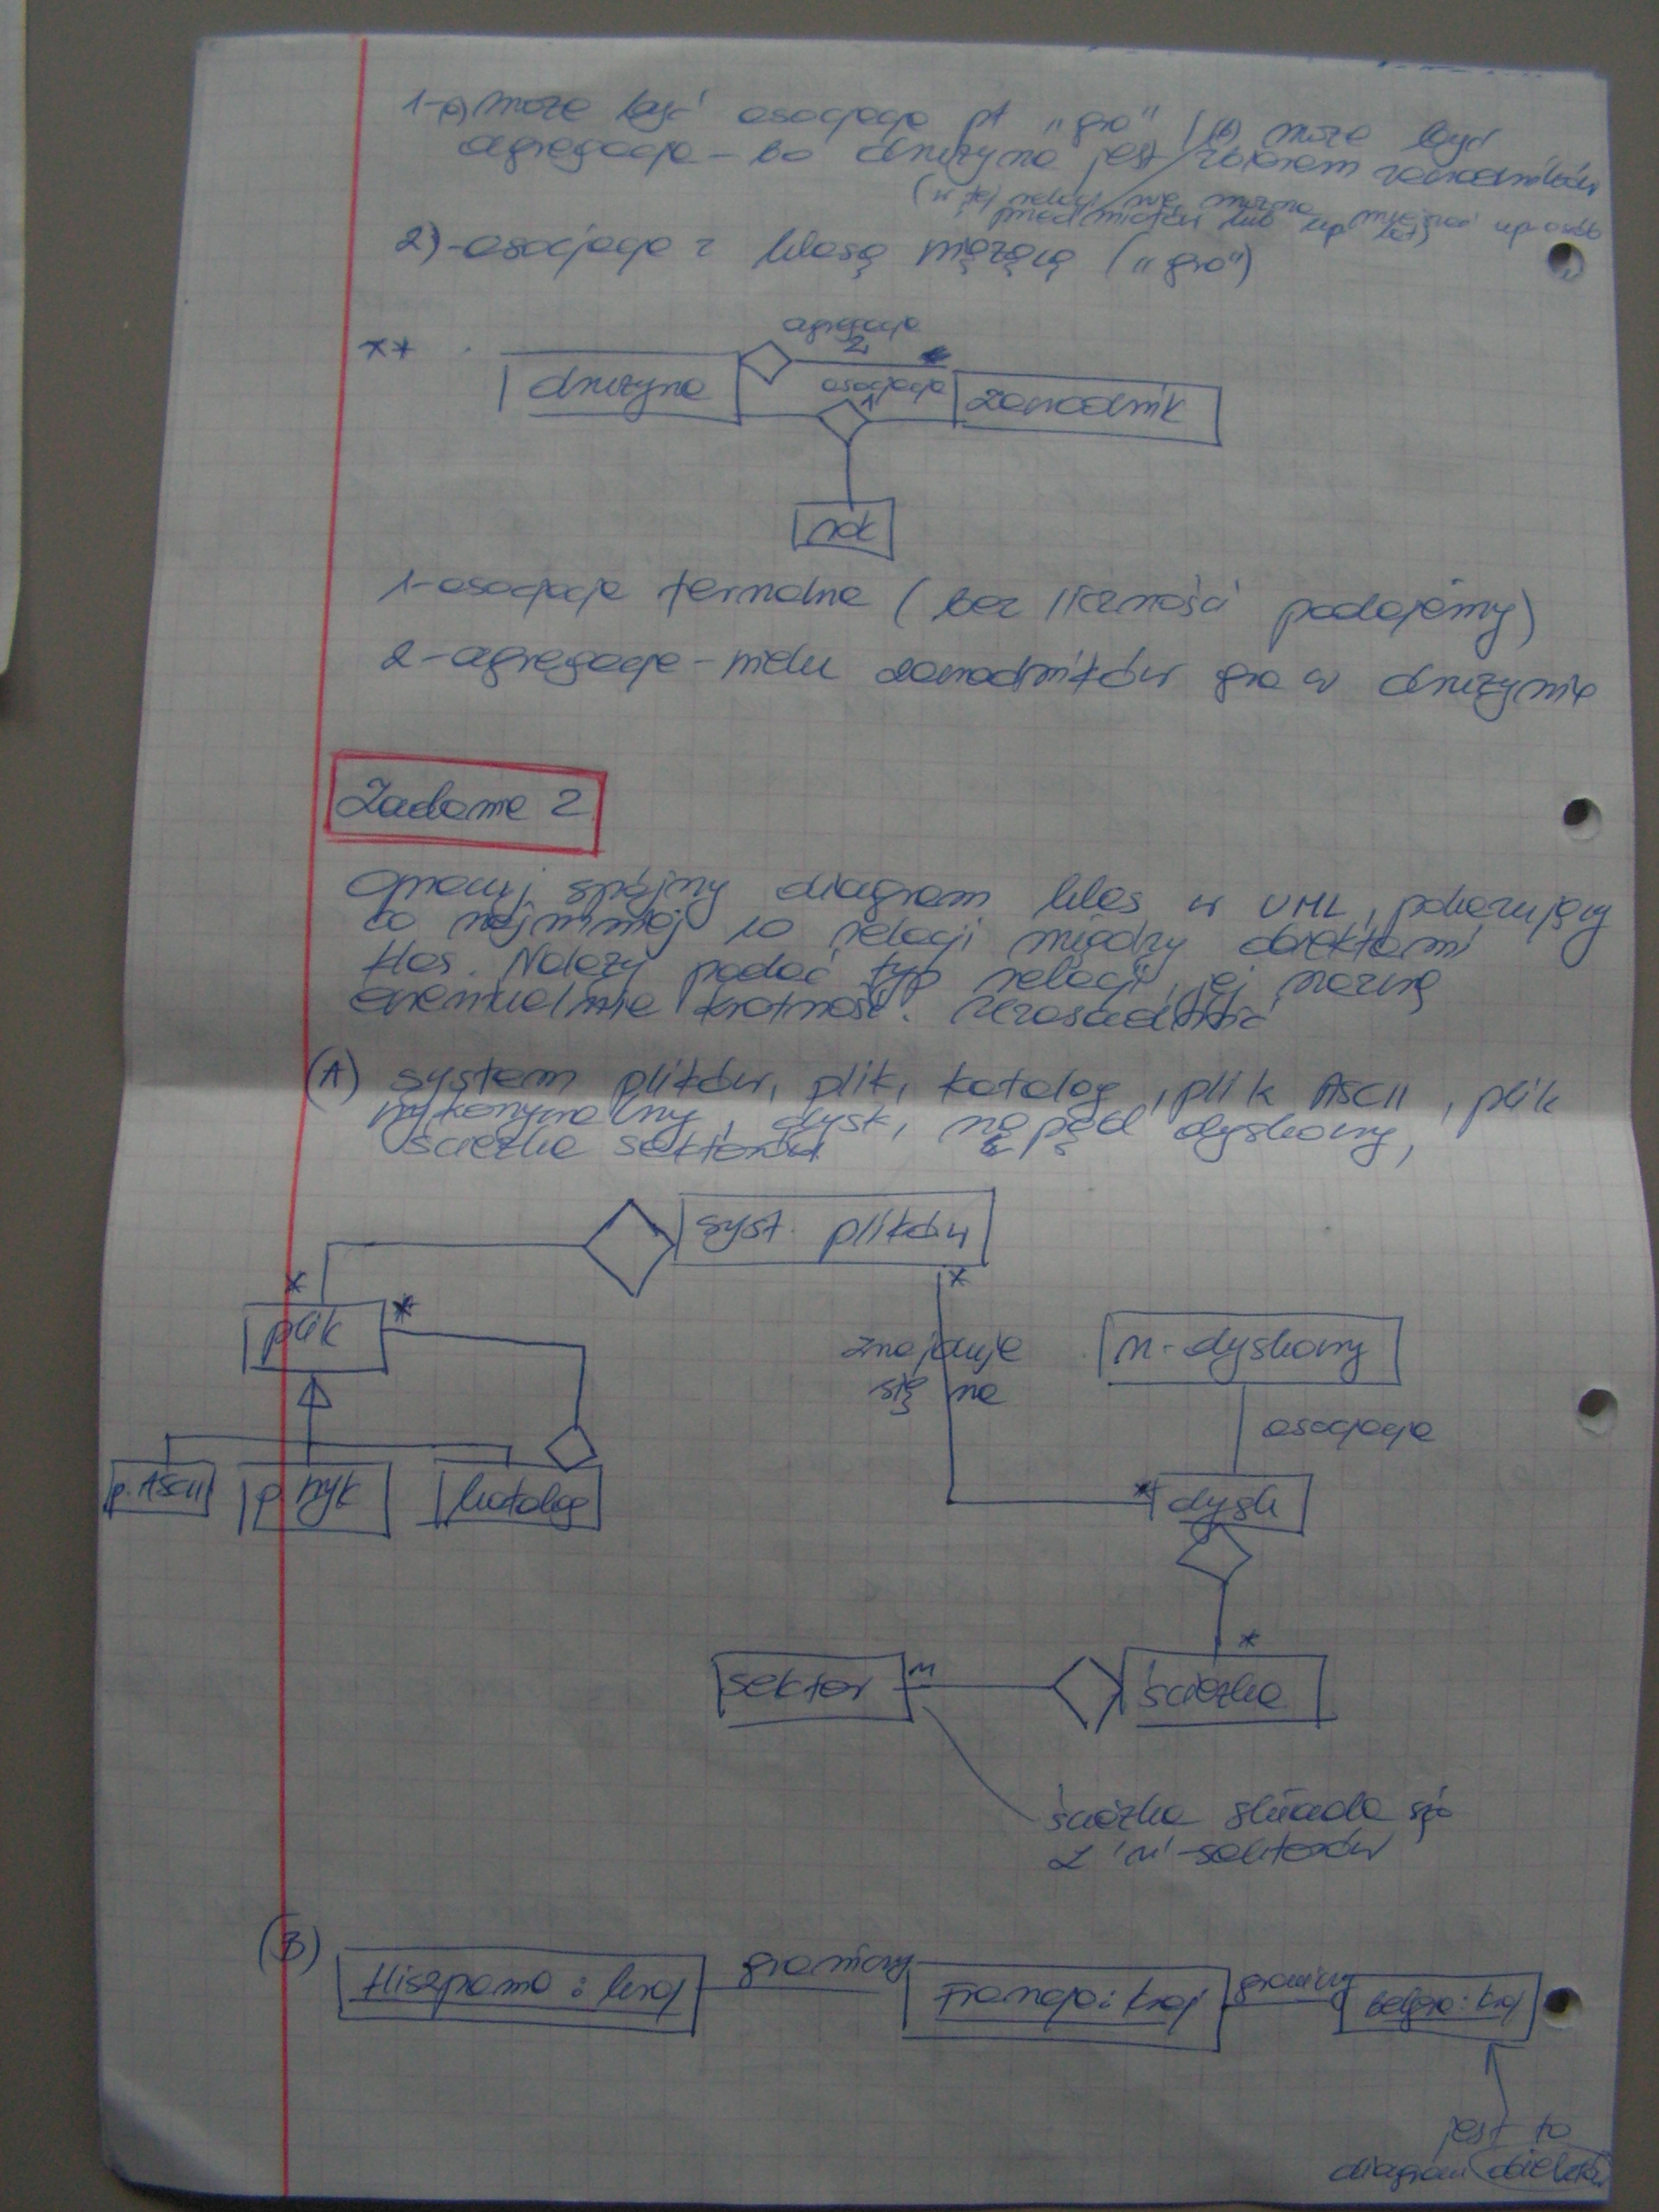 1-a) może być asocjacja pt "gra" / b) może być
agregacja - bo drużyna jest zbiorem zawodników
(w tej relacji nie można mieszać np. osób
przedmiotów lub np.
2)-asocjacja z klasą wiążącą ("gra")
agregacja
2
** drużyna
asocjacja
1
zawodnik
rok
1-asocjacja ternalna (bez liczności podajemy)
2-agregacja - wielu zawodników gra w drużynie
Zadanie 2
Opracuj spójny diagram klas w UML, pokazujący
co najmniej 10 relacji między obiektami
klas. Należy podać typ relacji, jej nazwę
ewentualnie krotność. Uzasadnić
(A) system plików, plik, katalog, plik ASCII, plik
wykonywalny, dysk, napęd dyskowy,
ścieżka sektorów
syst. plików
* *
plik *
znajduje
się na
n-dyskowy
asocjacja
p. ASCII p. wyk katalog
* dysk
*
sektor n ścieżka
ścieżka składa się
z 'n' sektorów
(B) Hiszpania : kraj graniczy Francja : kraj graniczy Belgia : kraj
jest to
diagram obiektów